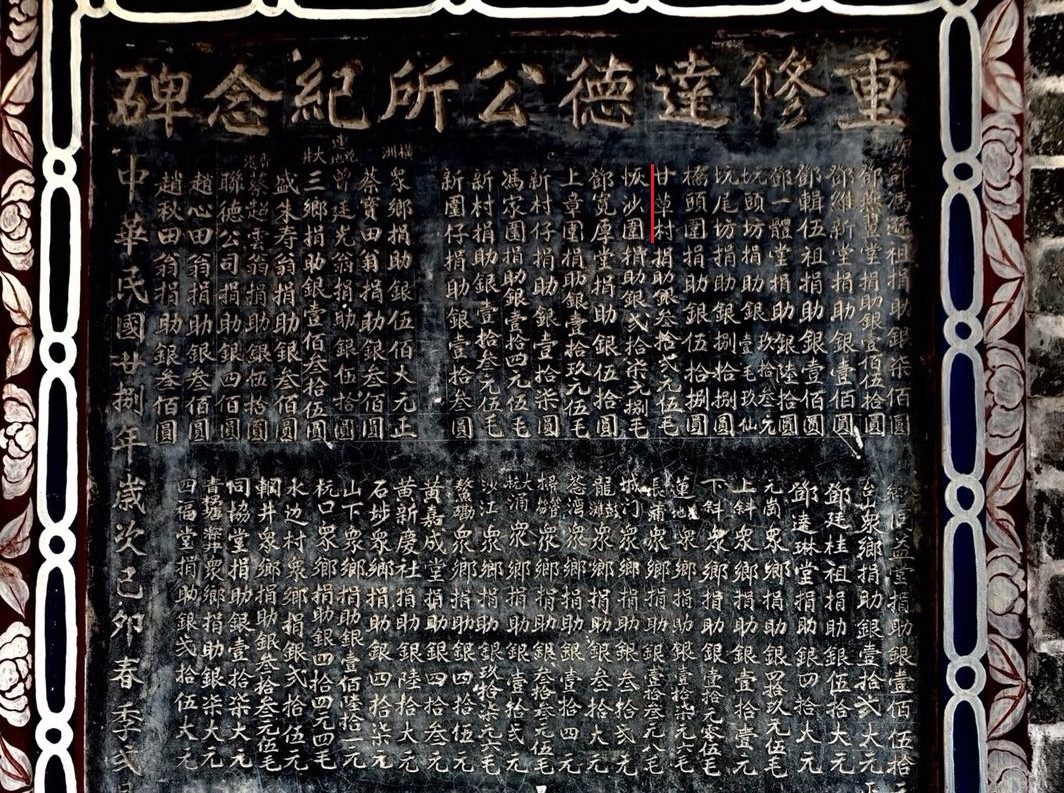 重修達德公所紀念碑
鄧馮逊祖捐助銀柒佰圓
鄧燕翼堂捐助銀壹佰伍拾圓
鄧維新堂捐助銀壹佰圓
鄧輯伍祖捐助銀壹佰圓
鄧一體堂捐助銀陸拾圓
坑頭坊捐助銀玖拾叁元壹毛玖仙
坑尾坊捐助銀捌拾圓
橋頭圍捐助銀伍拾捌圓
甘草村捐助銀叁拾弍元伍毛
灰沙圍捐助銀弍拾柒元捌毛
鄧寬厚堂捐助銀伍拾圓
上章圍捐助銀壹拾玖元伍毛
新村仔捐助銀壹拾柒圓
馮家圍捐助銀壹拾四元伍毛
新村捐助銀壹拾叁元伍毛
新圍仔捐助銀壹拾叁圓
橫洲眾鄉捐助銀伍佰大元正
蔡寶田翁捐助銀叁佰圓
曾廷光翁捐助銀伍拾圓
大井三鄉捐助銀壹佰叁拾伍圓
盛朱寿翁捐助銀叁佰圓
蔡超雲翁捐助銀伍拾圓
聯德公司捐助銀四佰圓
趙心田翁捐助銀叁佰圓
趙秋田翁捐助銀叁佰圓
同益堂捐助銀壹佰伍拾元
眾鄉捐助銀壹拾弍大元正
鄧廷桂祖捐助銀伍拾大元
鄧達琳堂捐助銀四拾大元
元崗眾鄉捐助銀四拾玖元伍毛
上斜眾鄉捐助銀壹拾壹元
下斜眾鄉捐助銀壹拾元零伍毛
蓮地眾鄉捐助銀壹拾柒元六毛
長蒲眾鄉捐助銀壹拾叁元八毛
城门眾鄉捐助銀叁拾弍元
龍潭眾鄉捐助銀叁拾大元
荃灣眾鄉捐助銀壹拾四元
眾鄉捐助銀叁拾叁元伍毛
大涌眾鄉捐助銀壹拾弍元
沙江眾鄉捐助銀玖拾柒元六毛
鰲磡眾鄉捐助銀四拾伍元
黃嘉成堂捐助銀四拾叁元
黄新慶社捐助銀陸拾大元
石埗眾鄉捐助銀四拾柒元
山下眾鄉捐助銀壹佰陸拾二元
杬口眾鄉捐助銀四拾四元四毛
水边村眾鄉捐銀弍拾伍元
輞井眾鄉捐助銀叁拾叁元伍毛
同協堂捐助銀壹拾柒大元
青磚圍眾鄉捐助銀柒大元
四福堂捐助銀弍拾伍大元
中華民國廿捌年歲次己卯春季弍